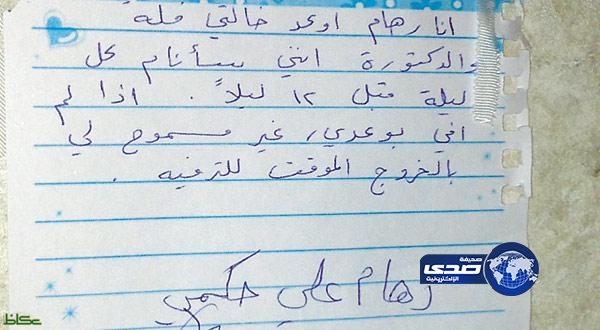 انا رهام اوعد خالتي فلة
والدكتورة انني سأنام كل
ليلة قبل ١٢ ليلاً. اذا لم
افي بوعدي، غير مسموح لي
بالخروج المؤقت للترفيه.
رهام علي حكمي
صحيفة
صدى
الإلكترونية
عكاظ